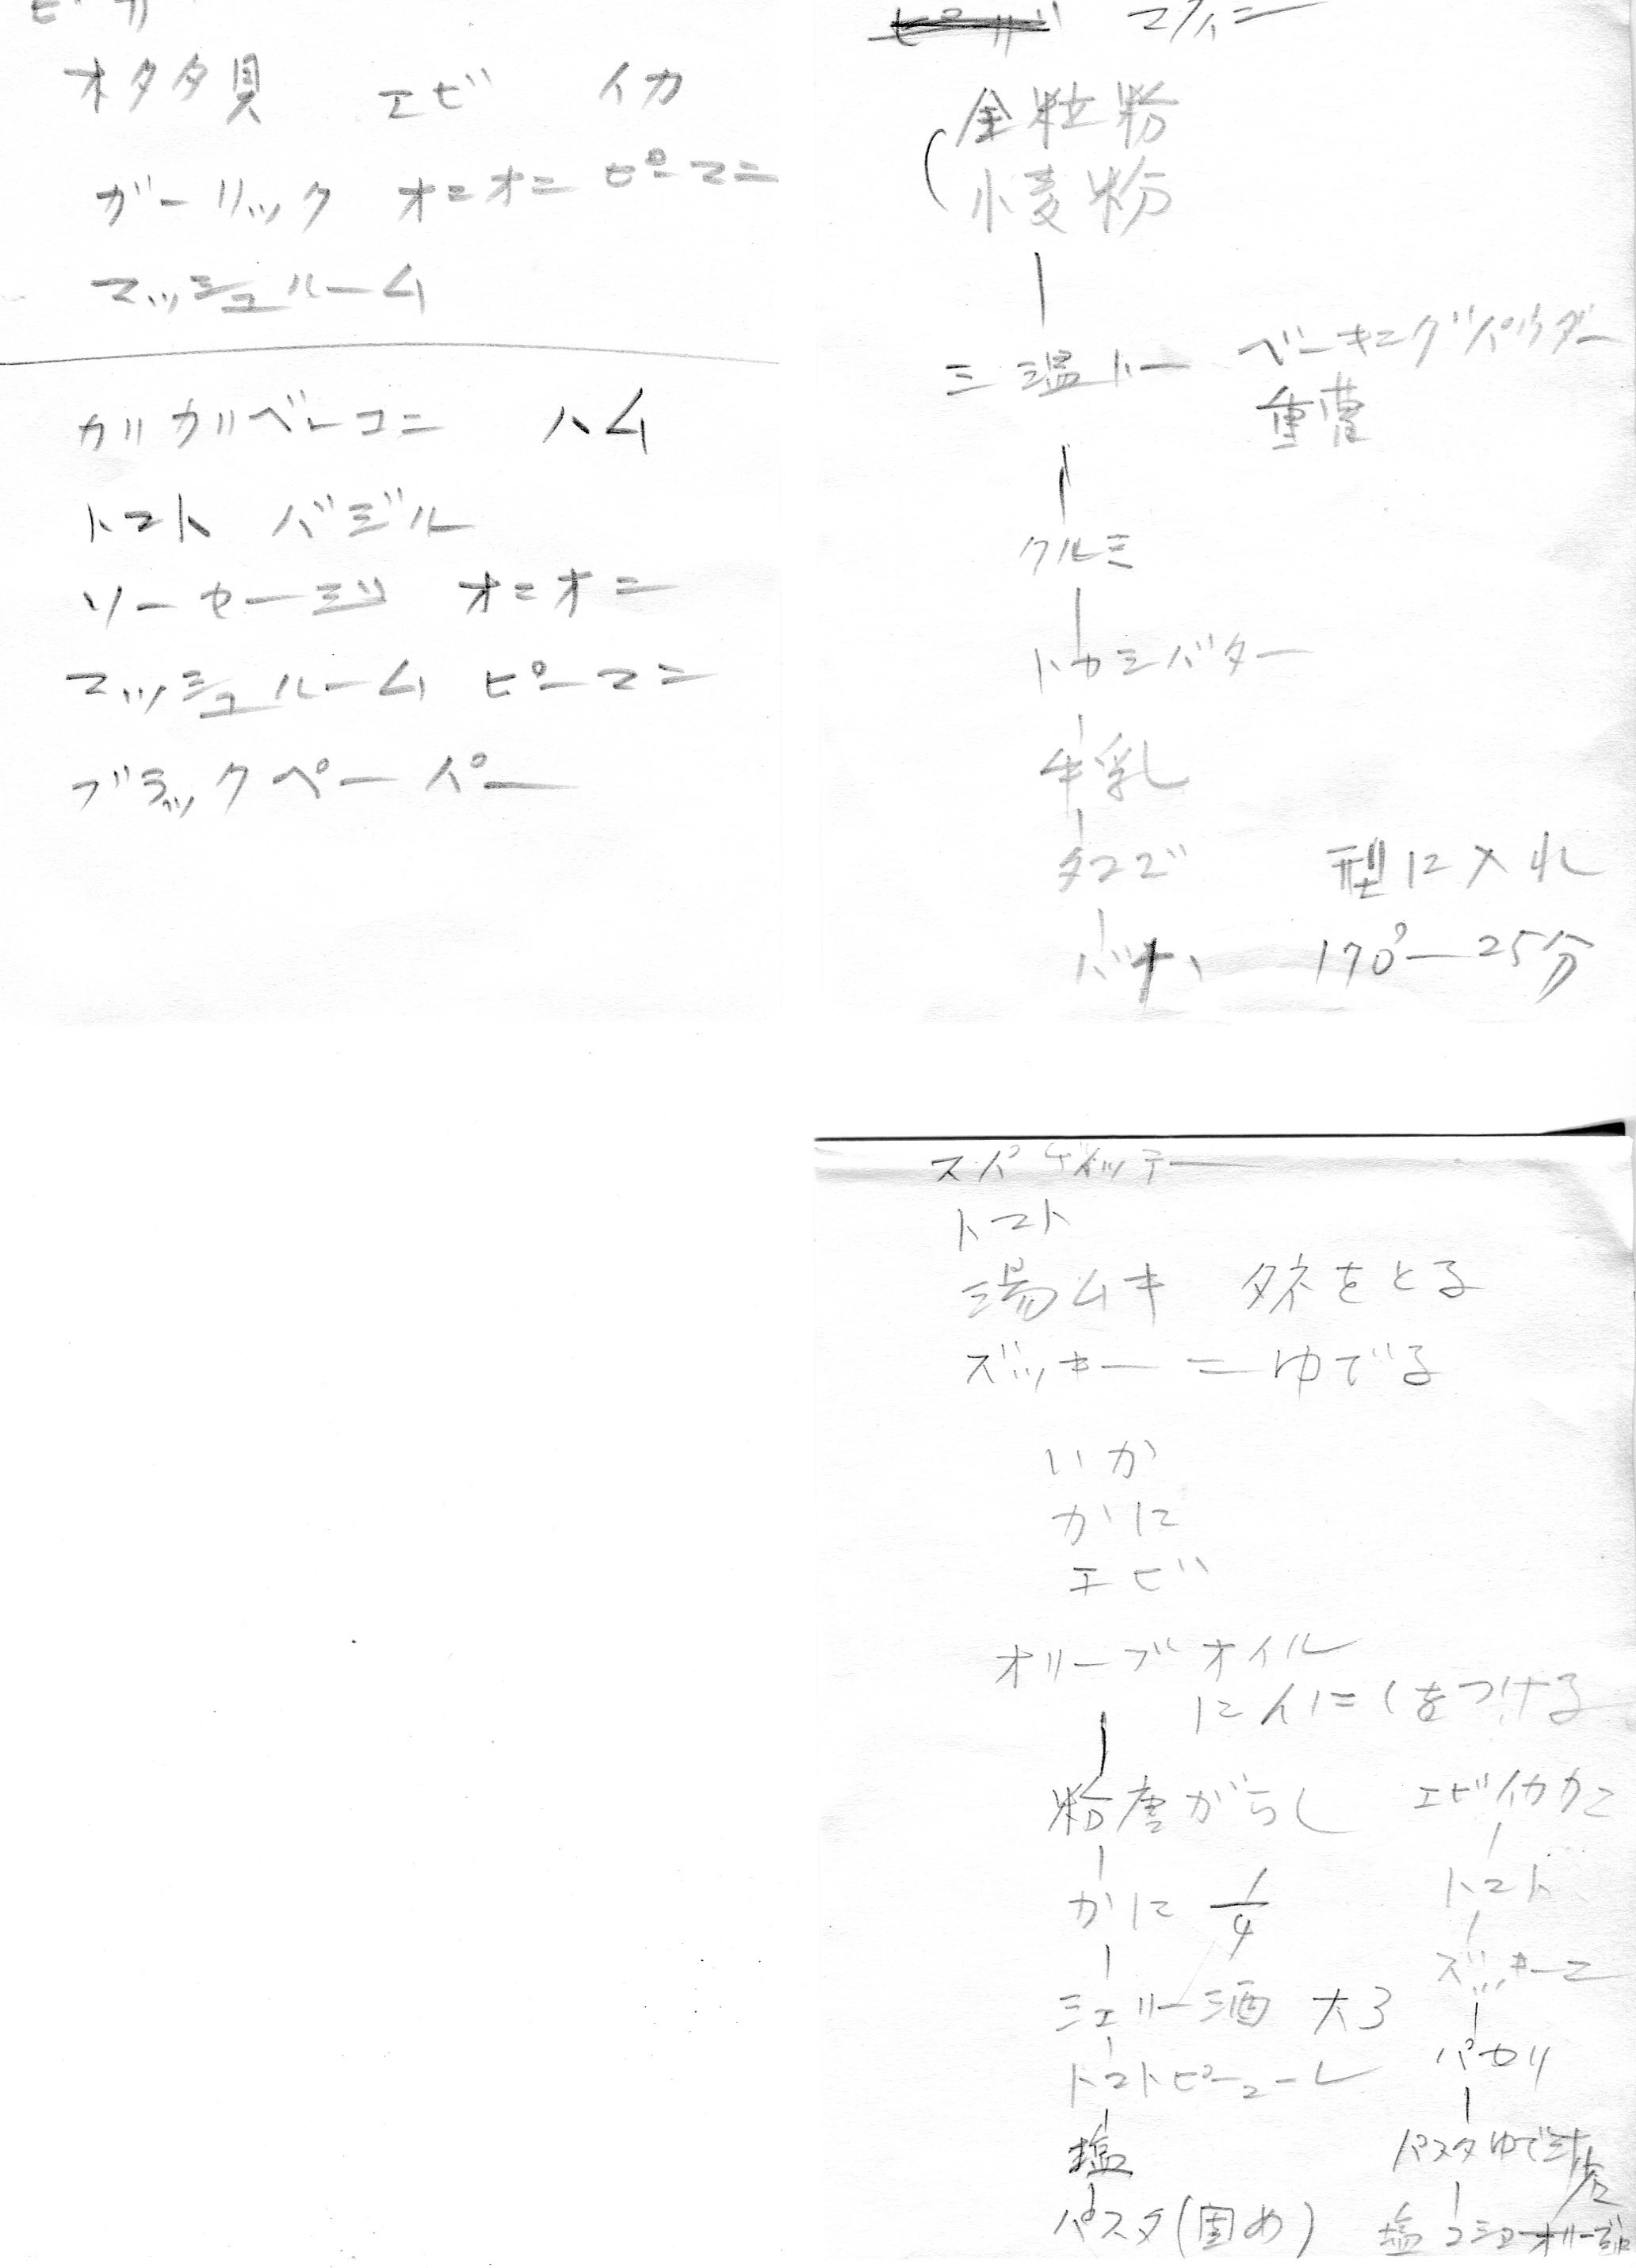 オタタ貝 エビ イカ
ガーリック オニオニ ピーマニ
マッシュルーム
カリカリベーコニ ハム
トマト バジル
ソーセージ オニオニ
マッシュルーム ピーマニ
ブラックペーパー
マフィニ
全粒粉
小麦粉
三温トー ベーキニグパウダー
重曹
クルミ
トカシバター
牛乳
タマゴ 型に入れ
バナナ 170°ー25分
スパゲィッテー
トマト
湯ムキ タネをとる
ズッキーニゆでる
いか
かに
エビ
オリーブオイル
にんにくをつける
粉唐がらし
かに 1/4
シェリー酒 大3
トマトピューレ
塩
パスタ(固め)
エビイカカニ
トマト
ズッキーニ
パセリ
パスタゆで汁
塩コショーオリーブ油